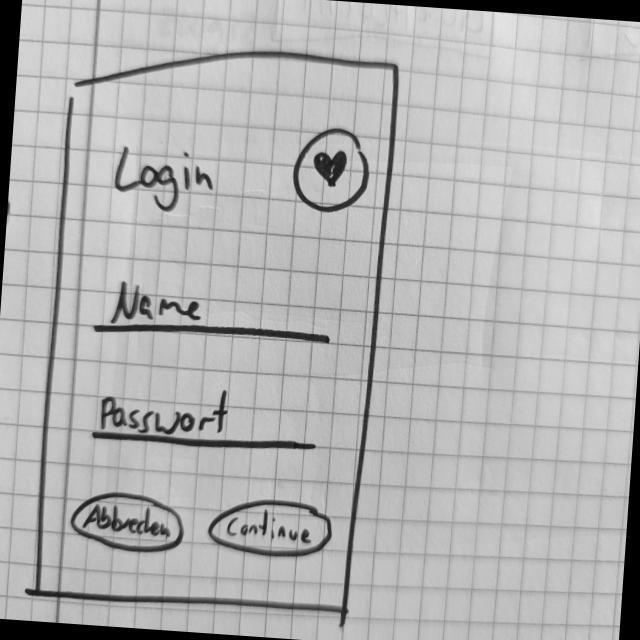 Login
Name
Passwort
Abbrechen Continue